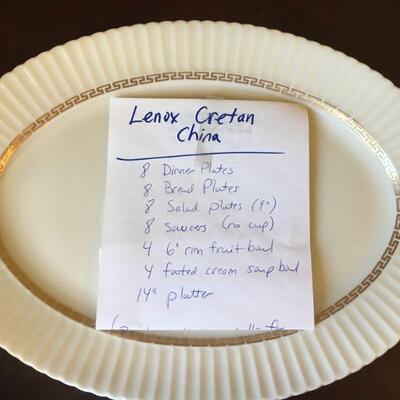 Lenox Cretan
China
8 Dinner Plates
8 Bread Plates
8 Salad plates (9")
8 Saucers (no cup)
4 6" rim fruit bowl
4 footed cream soup bowl
14" platter